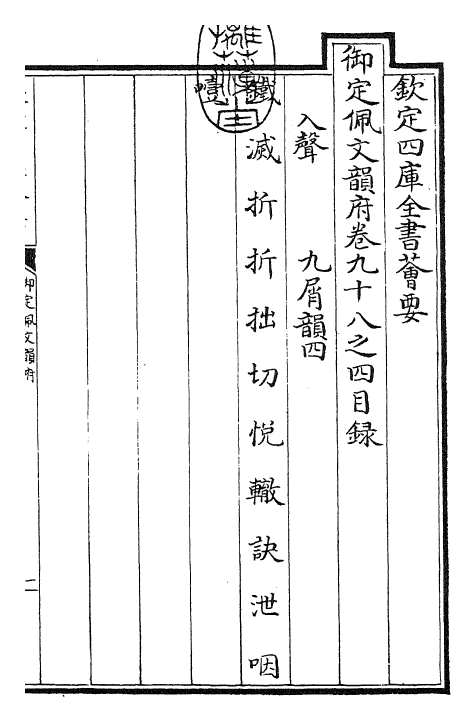 欽定四庫全書薈要
御定佩文韻府卷九十八之四目録
入聲 九屑韻四
滅 折 折 拙 切 悅 轍 訣 泄 咽
御定佩文韻府